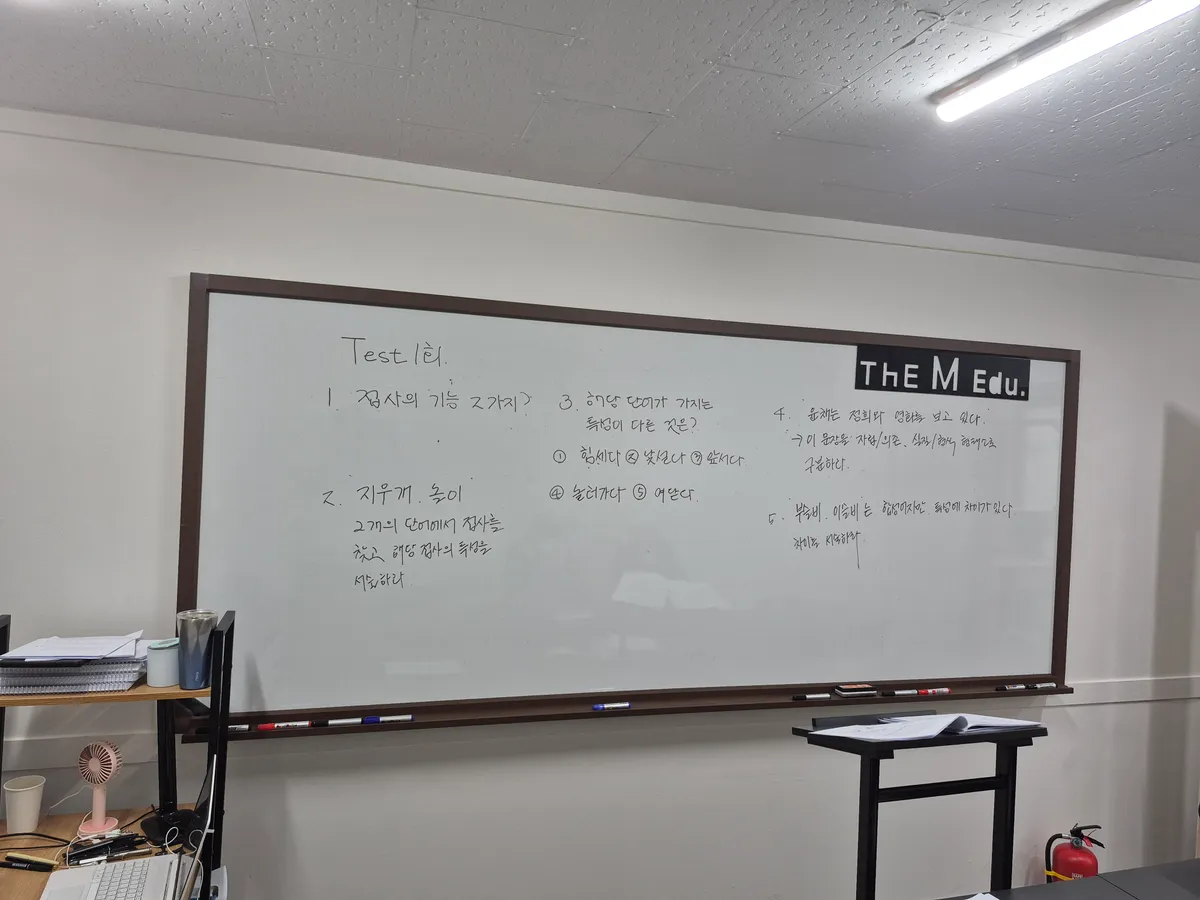 Test 1회.
1. 접사의 기능 2가지?
2. 지우개, 놀이
2개의 단어에서 접사를
찾고 해당 접사의 특성을
서술하라
3. 해당 단어가 가지는
특성이 다른 것은?
① 힘세다 ② 낯설다 ③ 앞서다
④ 놀러가다 ⑤ 여닫다
THE M Edu.
4. 윤채는 정희와 영화를 보고 있다.
→ 이 문장을 자립/의존, 실질/형식 형태소로
구분하라.
5. 부슬비, 이슬비는 합성어지만 특성에 차이가 있다
차이를 서술하라